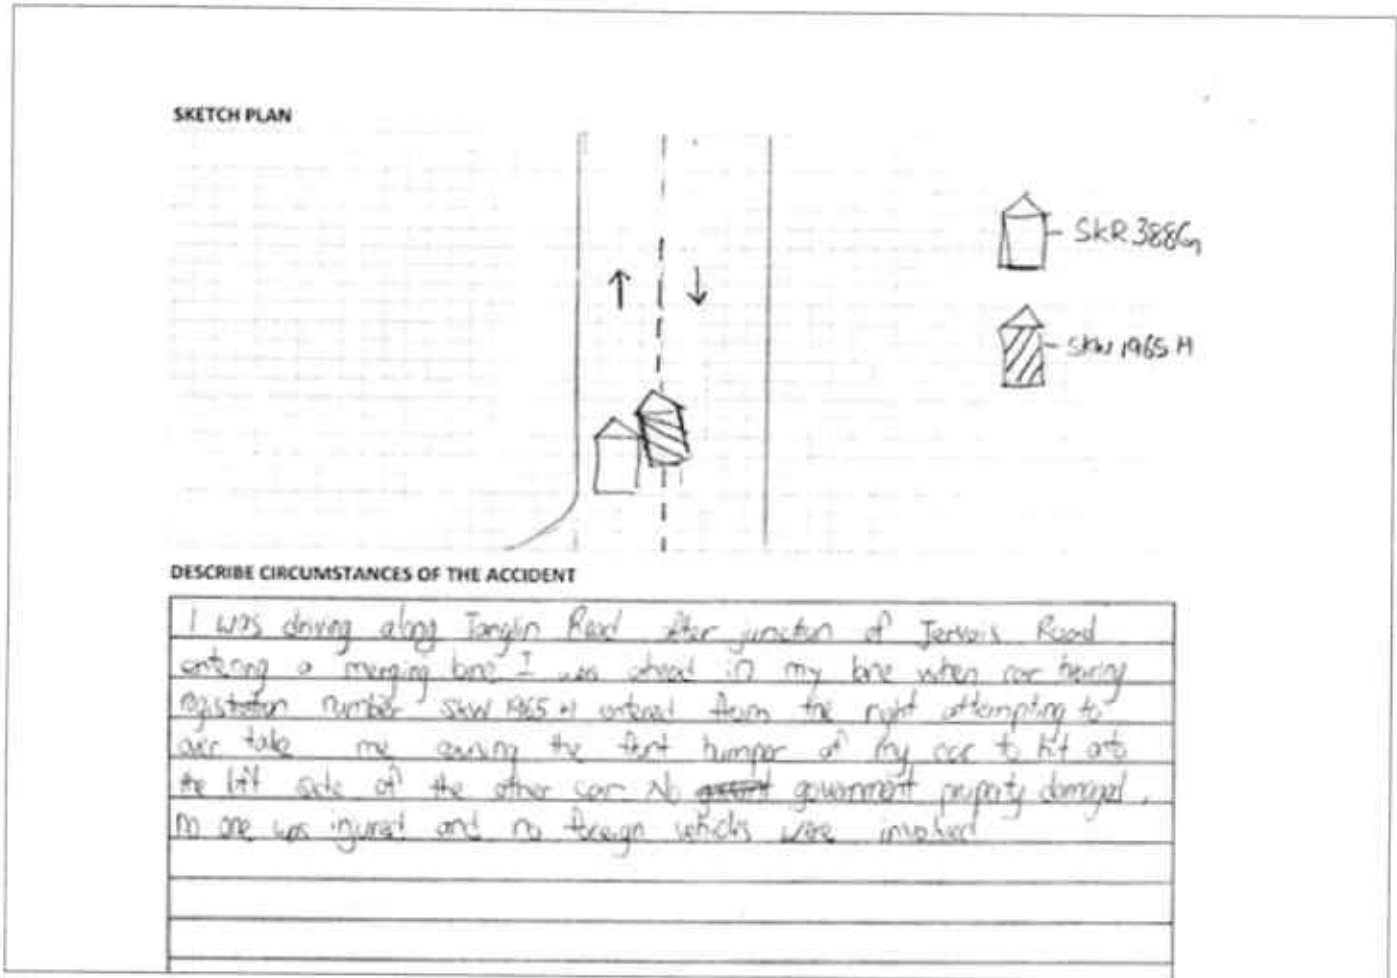 SKETCH PLAN
SKR 388G
SKW 1965 H
DESCRIBE CIRCUMSTANCES OF THE ACCIDENT
I was driving along Tanglin Road after junction of Jervois Road
entering a merging lane I was ahead in my lane when car having
registration number SKW 1965 H entered from the right attempting to
over take me causing the front bumper of my car to hit onto
the left side of the other car. No government property damaged,
no one was injured and no foreign vehicles were involved